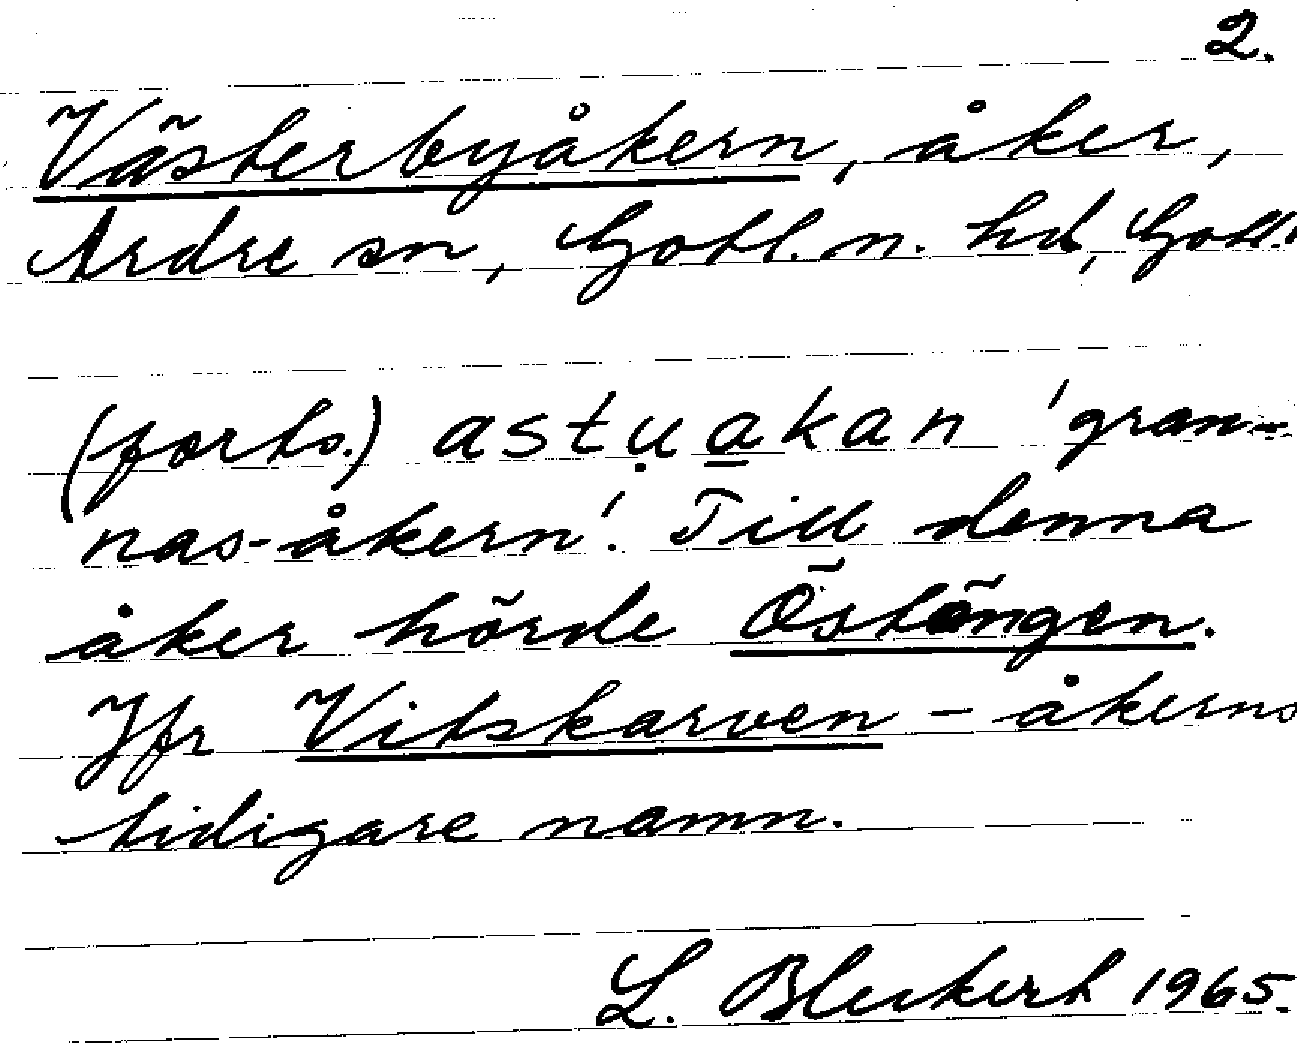 2.
Västerbyåkern, åker,
Ardre sn, Gotl. n. hd, Gotl.
(forts.) astụa̱kan 'gran-
nas-åkern'. Till denna
åker hörde Östängen.
Jfr Vitskarven - åkerns
tidigare namn.
L. Bleckert 1965.